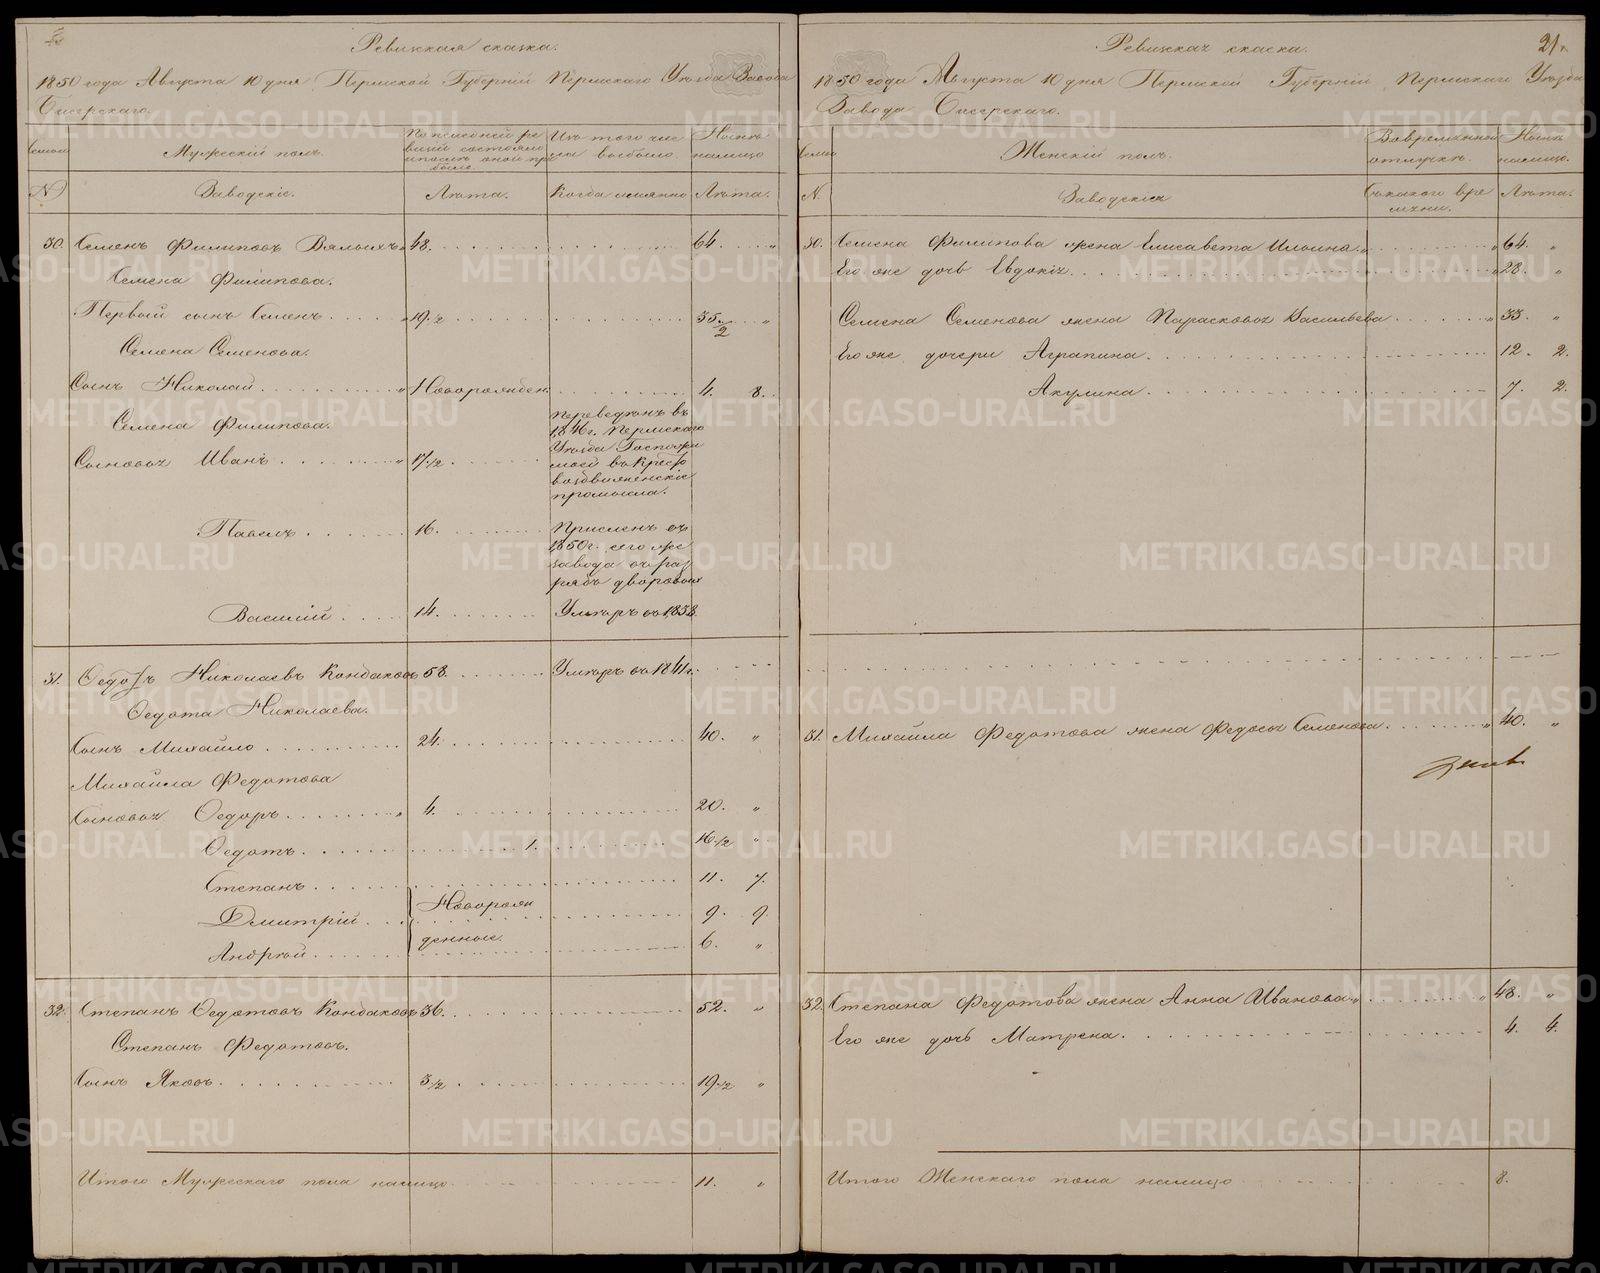 Ревижская сказка.
1850 года Августа 10 дня Пермской Губерніи Пермскаго Уѣзда Завода
Бисерскаго.
Семьи
Мужескій полъ.
По послѣдней ре
визіи состояло
и послѣ оной при
было.
Изъ того чис
ла выбыло.
Нынѣ
налицо
№
Заводскіе.
Лѣта.
Когда имянно
Лѣта.
30. Семенъ Филиповъ Вялыхъ 48. 64. "
Семена Филипова.
Первый сынъ Семенъ 19 1/2 35 1/2 "
Семена Семенова.
Сынъ Николай Новорожден. 4. 8.
Семена Филипова.
Сыновья Иванъ 17 1/2
Переведенъ въ
1846г. Пермскаго
Уѣзда Госпожи
моей въ Кресто
воздвиженскіе
промысла.
Павелъ 16.
Присленъ въ
1850г. сего же
завода въ раз
рядъ дворовыхъ
Василій 14. Умеръ въ 1838.
31. Ѳедотъ Николаевъ Кондаковъ 58. Умеръ въ 1841г.
Ѳедота Николаева.
Сынъ Михайло 24. 40. "
Михайла Федотова
Сыновья Ѳедоръ 4. 20. "
Ѳедотъ 1. 16 1/2 "
Степанъ 11. 7.
Дмитрій Новорож 9. 9.
Андрей денные. 6. "
32. Степанъ Ѳедотовъ Кондаковъ 36. 52. "
Степанъ Федотовъ.
Сынъ Яковъ 3 1/2 19 1/2 "
Итого Мужескаго пола налицо 11. "
Ревижская скаска.
21.
1850 года Августа 10 дня Пермской Губерніи Пермскаго Уѣзда
Завода Бисерскаго.
Семьи
Женскій полъ.
Во временной
отлучкѣ.
Нынѣ
налицо.
№.
Заводскія
Съ какого вре
мени.
Лѣта.
30. Семена Филипова жена Елисавета Ильина 64. "
Его же дочь Евдокія 28. "
Семена Семенова жена Парасковья Васильева 33. "
Его же дочери Аграпина 12. 2.
Акулина 7. 2.
31. Михайла Федотова жена Федосья Семенова 40. "
32. Степана Федотова жена Анна Иванова 48. "
Его же дочь Матрена 4. 4.
Итого Женскаго пола налицо 8.
METRIKI.GASO-URAL.RU